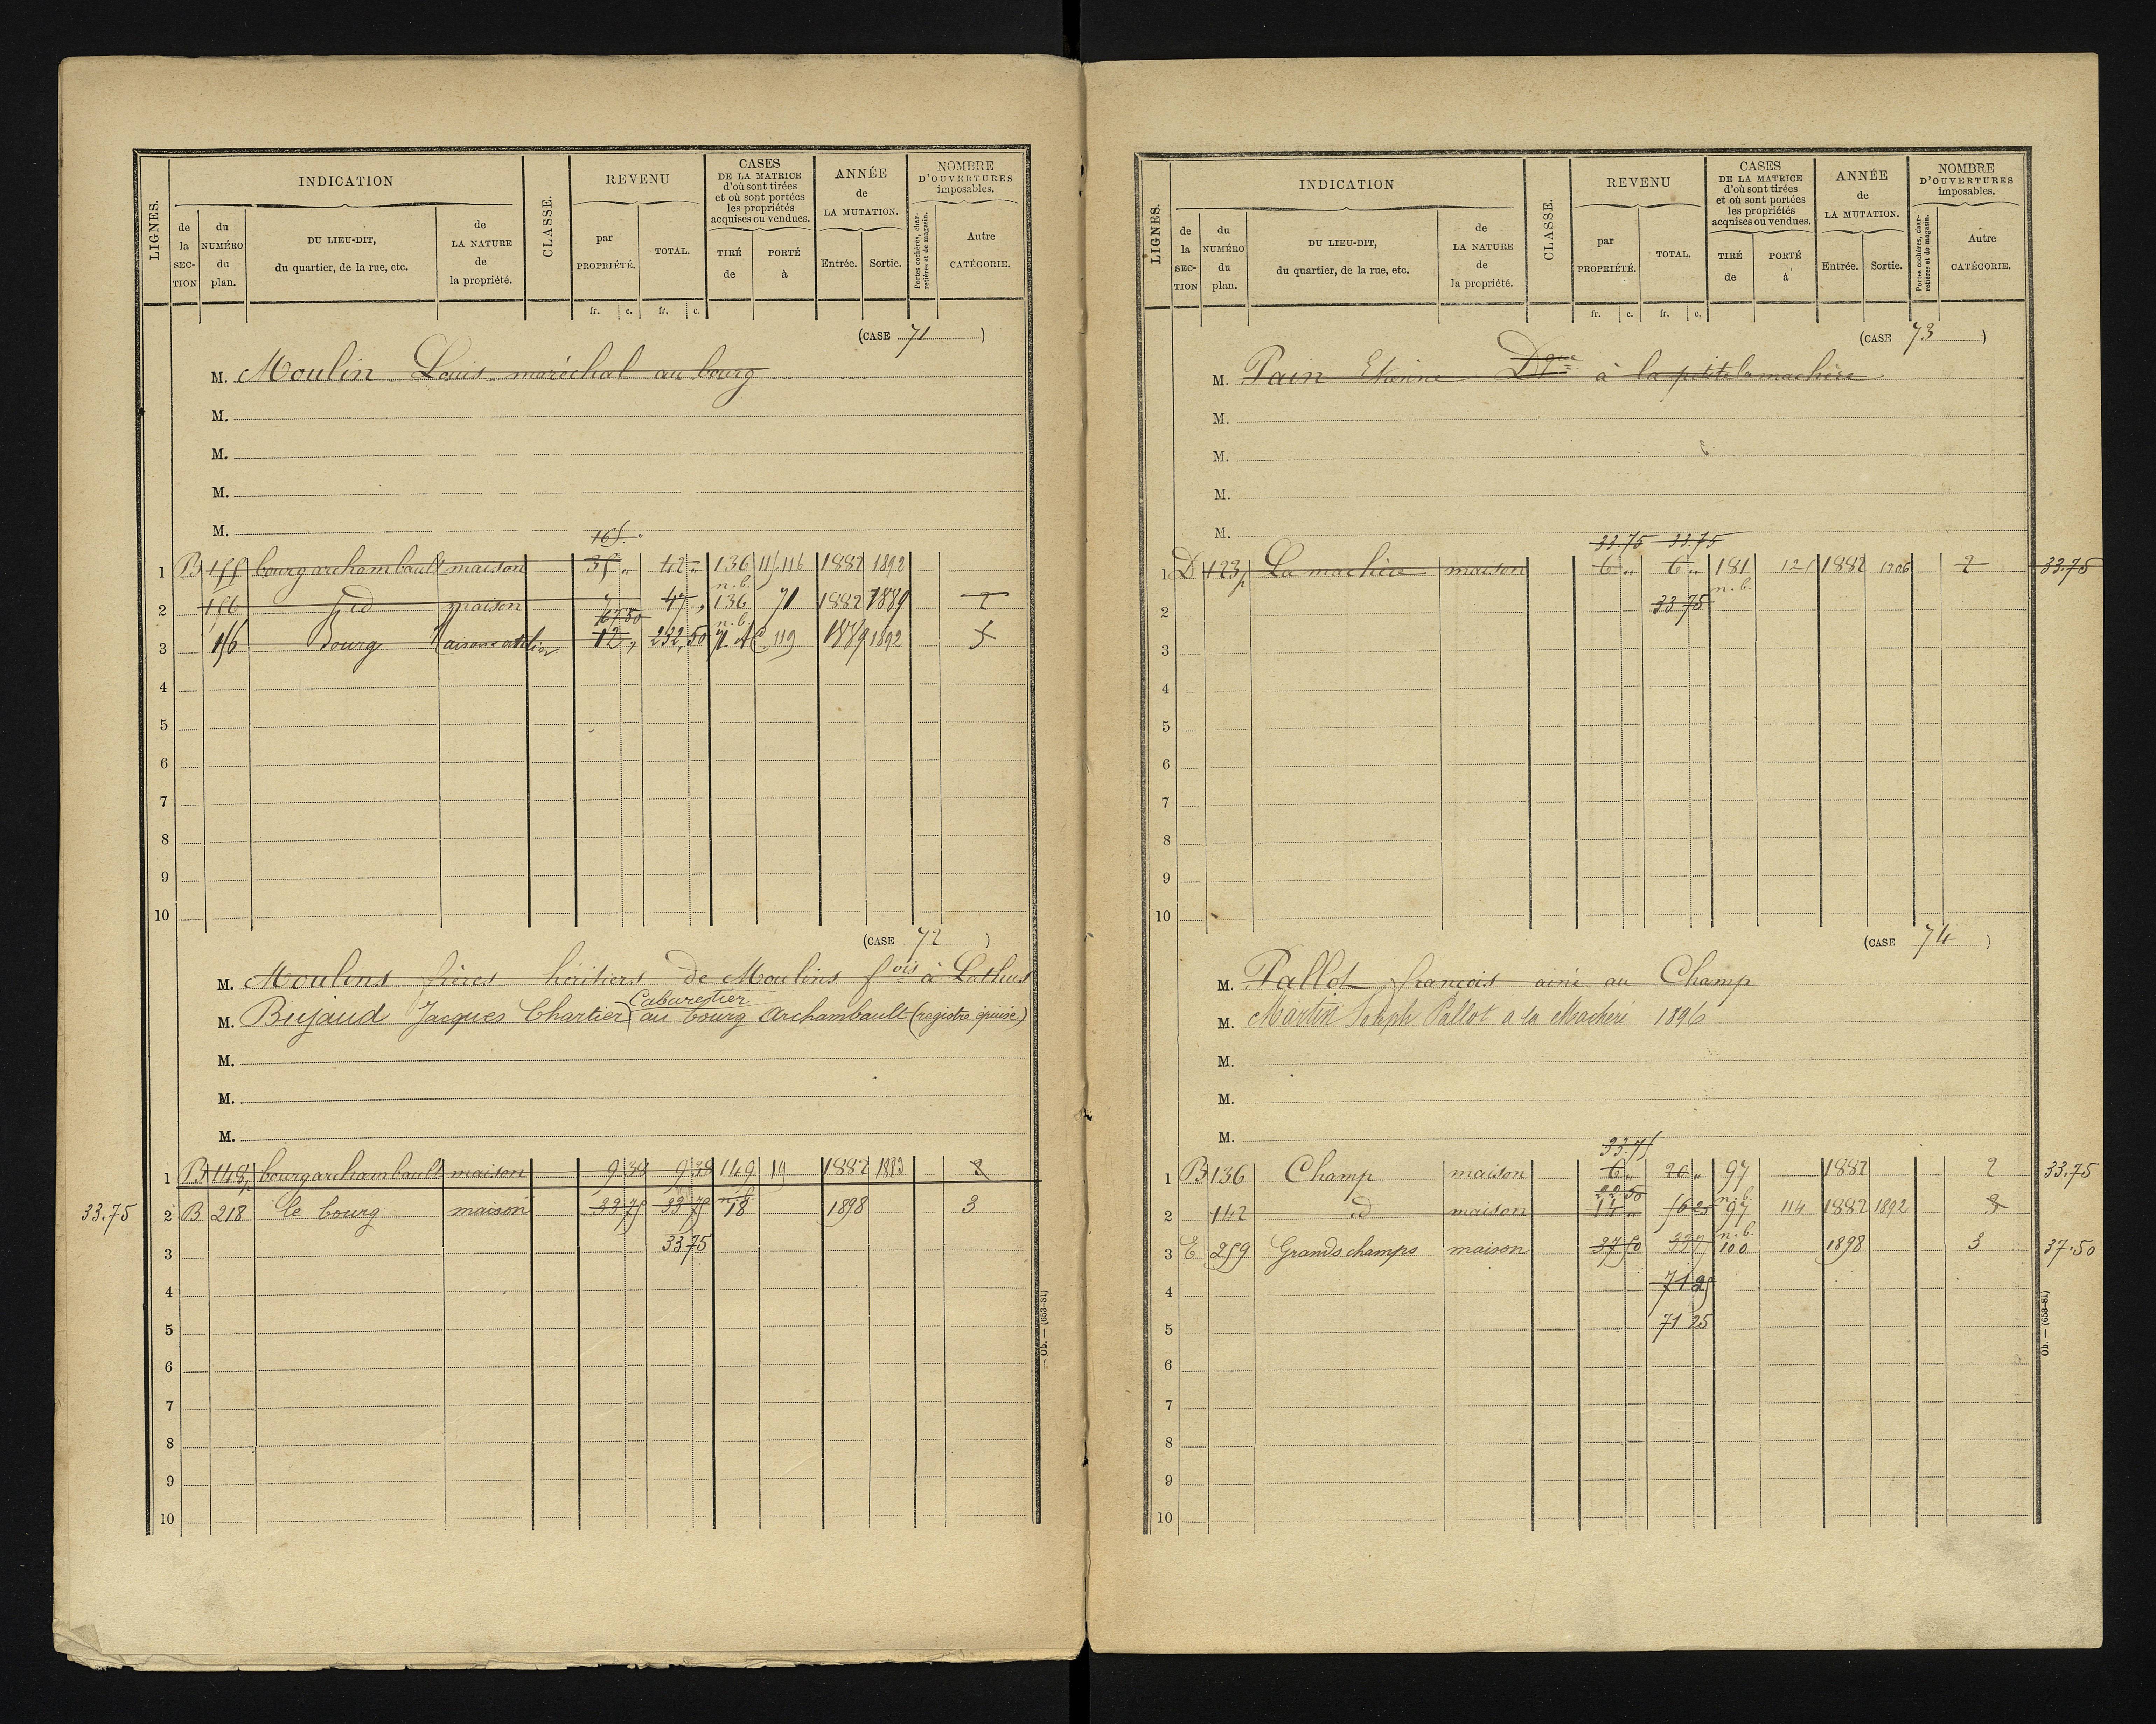 LIGNES.
INDICATION
de la SECTION
du NUMÉRO du plan.
DU LIEU-DIT, du quartier, de la rue, etc.
de LA NATURE de la propriété.
CLASSE.
REVENU
par PROPRIÉTÉ.
TOTAL.
CASES DE LA MATRICE d'où sont tirées et où sont portées les propriétés acquises ou vendues.
TIRÉ de
PORTÉ à
ANNÉE de LA MUTATION.
Entrée.
Sortie.
NOMBRE D'OUVERTURES imposables.
Portes cochères, charretières et de magasin.
Autre CATÉGORIE.
fr. c. fr. c.
(CASE 71)
M. Moulin Louis maréchal au bourg
M.
M.
M.
M.
165
1 B 155 bourg archambault maison 35 " 42 " 136 115.116 1882 1892
n.b.
2 156 id maison 7 47 " 136 71 1882 1889 2
67 50 n.b.
3 156 Bourg Maison atelier 12 " 232,50 71 119 1889 1892 5
4
5
6
7
8
9
10
(CASE 72)
M. Moulins frères héritiers de Moulins fois à Lathus
Cabaretier
M. Bujaud Jacques Chartier au bourg Archambault (registre épuisé)
M.
M.
M.
1 B 148p bourg archambault maison 9 38 9 38 149 19 1882 1883 2
n.b.
33.75 2 B 218 le bourg maison 33 75 33 75 18 1898 3
3 33 75
4
5
6
7
8
9
10
Ob. — (653-81)
LIGNES.
INDICATION
de la SECTION
du NUMÉRO du plan.
DU LIEU-DIT, du quartier, de la rue, etc.
de LA NATURE de la propriété.
CLASSE.
REVENU
par PROPRIÉTÉ.
TOTAL.
CASES DE LA MATRICE d'où sont tirées et où sont portées les propriétés acquises ou vendues.
TIRÉ de
PORTÉ à
ANNÉE de LA MUTATION.
Entrée.
Sortie.
NOMBRE D'OUVERTURES imposables.
Portes cochères, charretières et de magasin.
Autre CATÉGORIE.
fr. c. fr. c.
(CASE 73)
M. Pain Etienne Dque à la petite lamachère
M.
M.
M.
M.
33.75 33.75
1 D 123p La machère maison 6 " 6 " 181 121 1882 1906 2 33.75
n.b.
2 33 75
3
4
5
6
7
8
9
10
(CASE 74)
M. Pallot françois ainé au Champ
M. Martin Joseph Pallot a la Macheré 1896
M.
M.
M.
33.75
1 B 136 Champ maison 6 " 20 " 97 1882 2 33.75
22.50 n.b.
2 142 id maison 14 " 56 25 97 114 1882 1892 3
n.b.
3 E 259 Grands champs maison 37 50 33 7 100 1898 3 37.50
4 71 25
5 71 25
6
7
8
9
10
Ob. — (653-81)